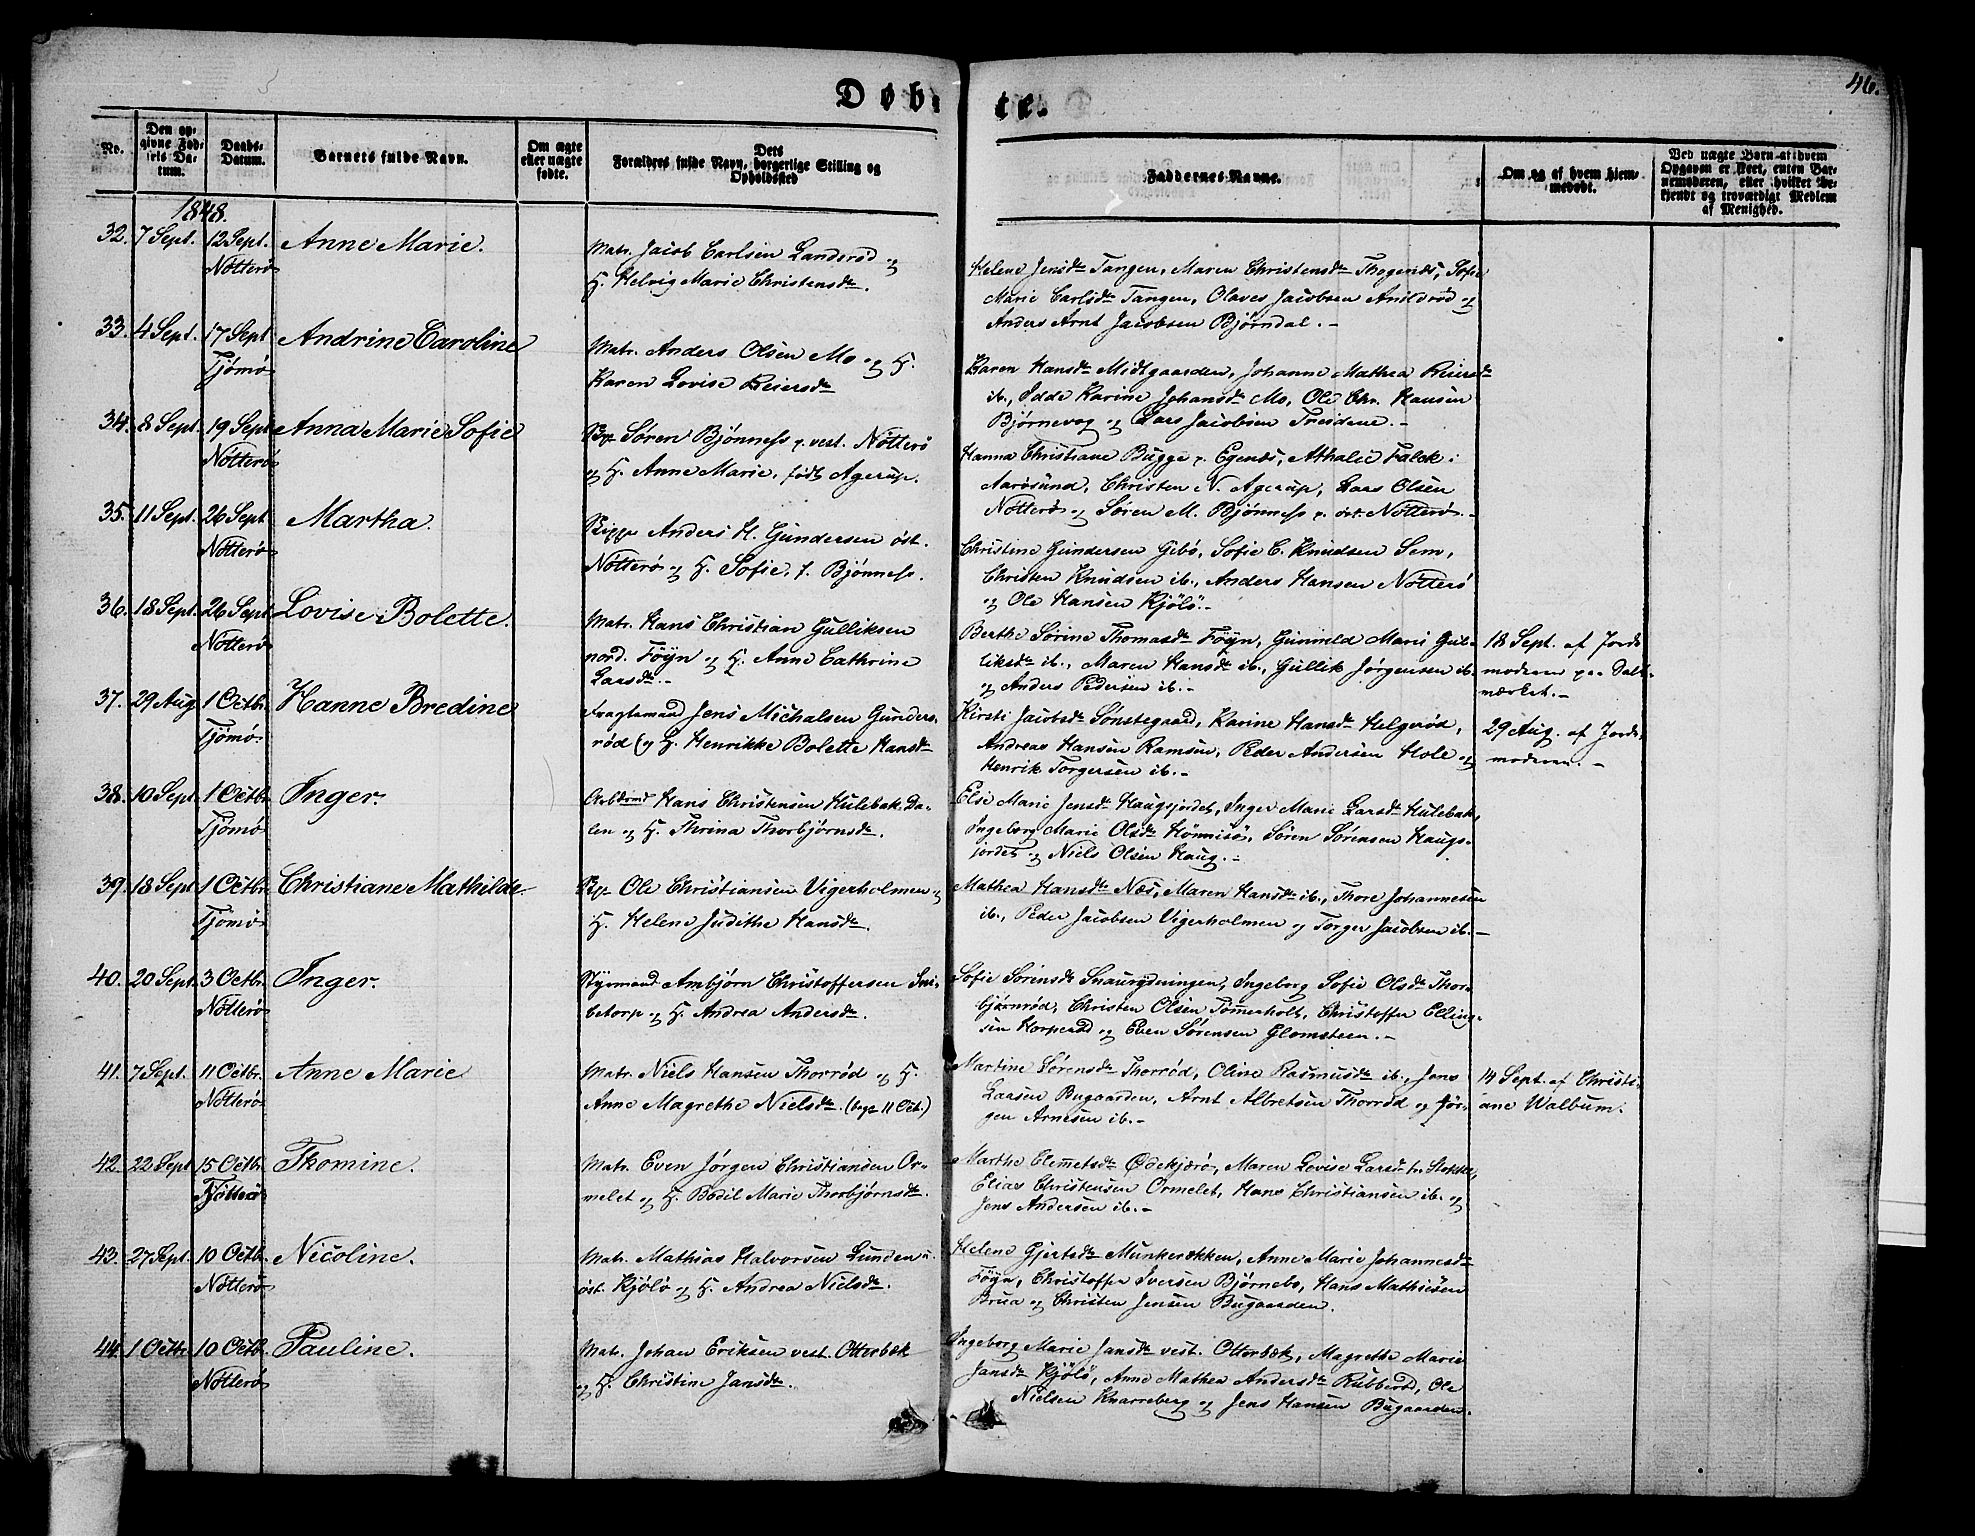 Døbte.
46.
No.
Den op-
givne Fød-
sels Da-
tum.
Daabs-
Datum.
Barnets fulde Navn.
Om ægte
eller uægte
fødte.
Dets
Forældres fulde Navn, borgerlige Stilling og
Opholdssted
Faddernes Navne.
Om og af hvem hjem-
medøbt.
Ved uægte Børn af hvem
Opgaven er skeet, enten Bar-
nemoderen, eller hvilket be-
kjendt og troværdigt Medlem
af Menighed.
1848.
32. 7 Sept. 12 Sept. Anne Marie.
Nötterö
Matr. Jacob Carlsen Landeröd og
H. Helvig Marie Christensdr.
Helene Jensdr Tangen, Maren Christensdr Thogenæs, Sofie
Marie Carlsdr Tangen, Olaves Jacobsen Anildröd og
Anders Arnt Jacobsen Bjørndal. -
33. 4 Sept. 17 Sept Andrine Caroline
Tjömö
Matr. Anders Olsen Mo og H.
Karen Lovise Reiersdr
Karen Hansdr Midtgaarden, Johanne Mathea Reiersdr
ib., Odde Karine Johansdr Mo, Ole Chr. Hansen
Bjørnevog og Lars Jacobsen Treidene. -
34. 8 Sept. 19 Sept Anna Marie Sofie
Nötterö
Søren Bjønness p. vest. Nötterö
og H. Anne Marie, født Agerup.
Hanna Christiane Bugge p. Egenæs, Athalie Falck i
Aarösund, Christen N. Agerup, Lars Olsen
Nötterö og Søren M. Bjønness p. öst. Nötterö. -
35. 11 Sept. 26 Sept Martha.
Nötterö
Skipp. Anders H. Gundersen öst.
Nötterö og H. Sofie, f. Bjønness.
Christine Gundersen Gibö, Sofie C. Knudsen Sem,
Christen Knudsen ib., Anders Hansen Nötterö
og Ole Hansen Kjölö. -
36. 18 Sept. 26 Sept Lovise Bolette.
Nötterö
Matr. Hans Christian Gulliksen
nord. Föyn og H. Anne Cathrine
Larsdr. -
Berthe Sörine Thomasdr Föyn, Gunnild Marie Gul-
liksdr ib., Maren Hansdr ib., Gullik Jørgensen ib.
og Anders Pedersen ib. -
18 Sept. af Jorde-
moderen paa Salt-
værket. -
37. 29 Aug 1 Octbr. Hanne Bredine
Tjömö.
Fragtemand Jens Michalsen Gunders-
röd og H. Henrikke Bolette Hansdr
Kirsti Jacobsdr Sönstegaard, Karine Hansdr Helgeröd,
Andreas Hansen Ramsen, Peder Andersen Hole og
Henrik Torgersen ib. -
29 Aug. af Jorde-
moderen. -
38. 10 Sept. 1 Octbr. Inger.
Tjömö
Arbdmd Hans Christensen Hulebak Da-
len og H. Thrina Thorbjørnsdr.
Else Marie Jensdr Haugsjordet, Inger Marie Larsdr Hulebak,
Ingeborg Marie Olsdr Hönnisö, Søren Sørensen Haugs-
jordet og Niels Olsen Haug. -
39. 18 Sept 1 Octbr. Christiane Mathilde
Tjömö
Ole Christiansen Vigerholmen og
H. Helene Judithe Hansdr.
Mathea Hansdr Næs, Maren Hansdr ib., Thore Johannesen
ib., Peder Jacobsen Vigerholmen og Torger Jacobsen ib. -
40. 20 Sept. 3 Octbr. Inger.
Nötterö
Styrmand Ambjørn Christoffersen Smi-
betorp og H. Andrea Andersdr.
Sofie Sørensdr Snaurydningen, Ingeborg Sofie Olsdr Thor-
bjørnröd, Christen Olsen Tømmerholt, Christoffer Elling-
sen Korperöd og Even Sørensen Glomsteen. -
41. 7 Sept. 11 Octbr. Anne Marie
Nötterö
Matr. Niels Hansen Thorröd og H.
Anne Magrethe Nielsdr. (begge 11 Oct.)
Martine Sørensdr Thorröd, Oline Rasmusdr ib., Jens
Larsen Bugaarden, Arnt Albretsen Thorröd og Jør-
gen Arnesen ib. -
14 Sept. af Christi-
ane Walbum.
42. 22 Sept 15 Octbr. Thomine.
Matr. Even Jørgen Christiansen Or-
melet og H. Bodil Marie Thorbjørnsdr.
Marthe Clemetsdr Ødekjærö, Maren Lovise Larsdr
Elias Christensen Ormelet, Hans Christiansen ib. og
Jens Andersen ib. -
43. 27 Sept. 10 Octb. Nicoline.
Nötterö
Matr. Mathias Halvorsen Lunden
öst. Kjölö og H. Andrea Nielsdr.
Helene Gjertsdr Munkerækken, Anne Marie Johannesdr
Föyn, Christoffer Iversen Bjørnebo, Hans Mathisen
Brua og Christen Jensen Bugaarden.
44. 1 Octbr. 10 Octb. Pauline.
Nötterö
Matr. Johan Eriksen vest. Otterbæk
og H. Christine Jansdr.
Ingeborg Marie Jansdr vest. Otterbæk, Magrethe Marie
Jansdr Kjölö, Anne Mathea Andersdr Rubberöd, Ole
Nielsen Knarreberg og Jens Hansen Bugaarden.